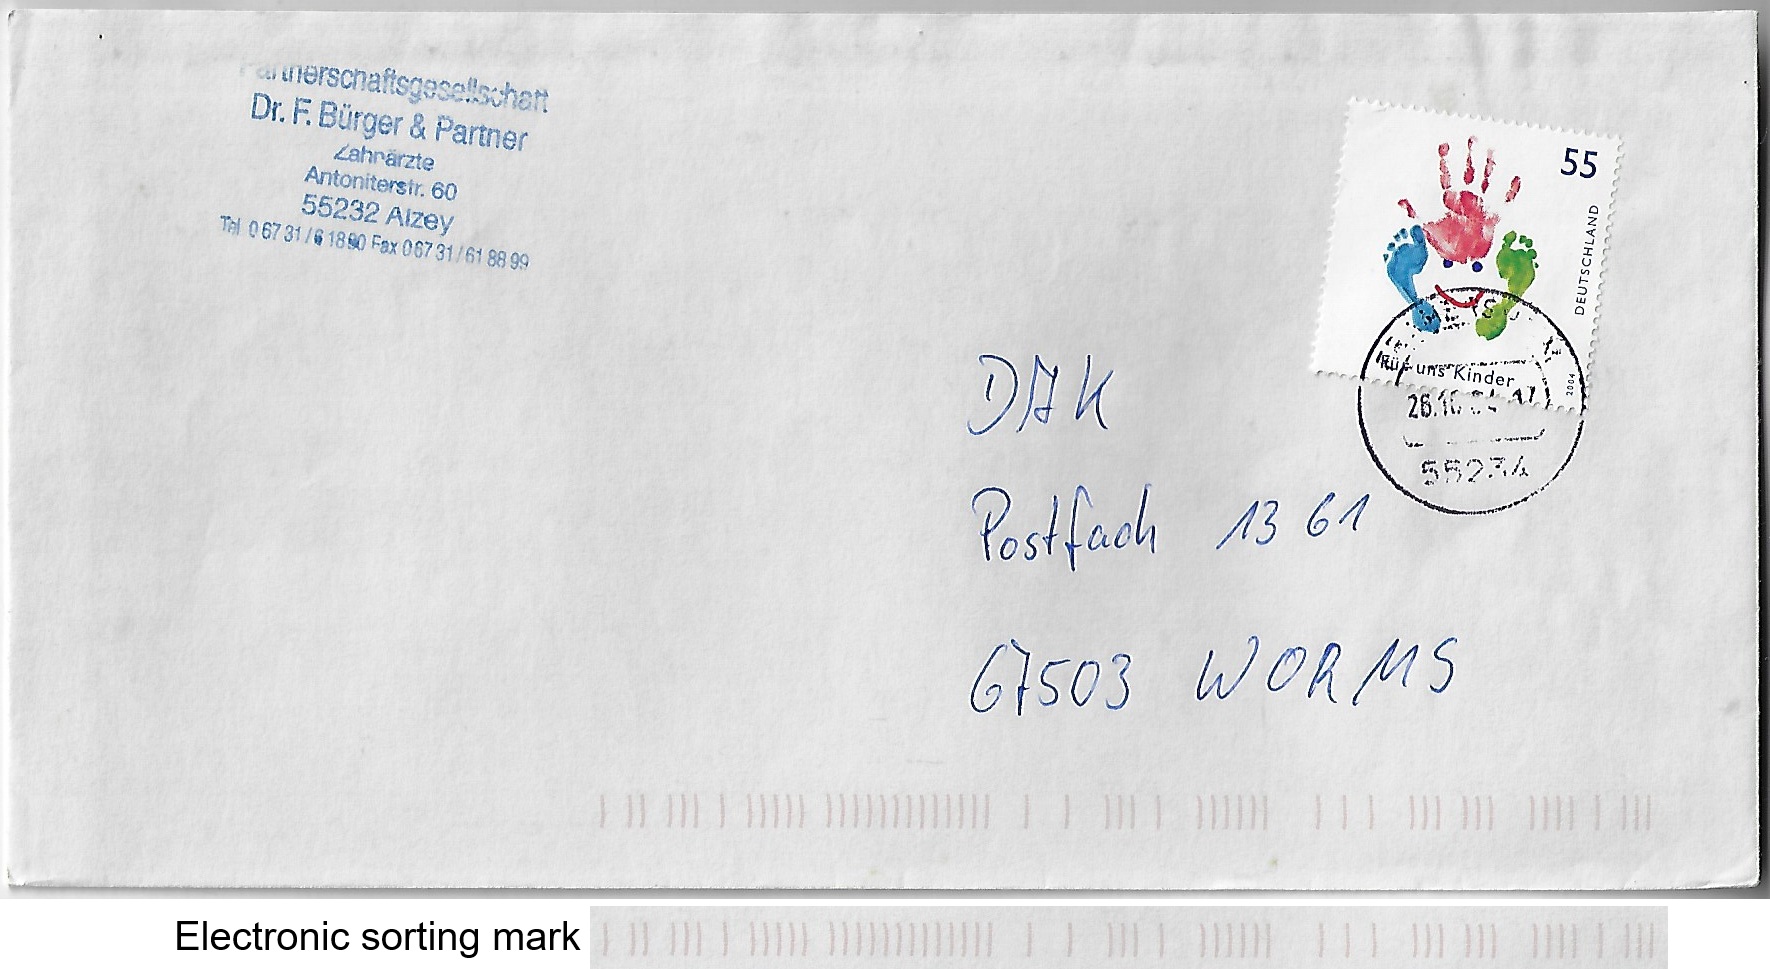 Partnerschaftsgesellschaft
Dr. F. Bürger & Partner
Zahnärzte
Antoniterstr. 60
55232 Alzey
Tel. 0 67 31 / 6 18 90 Fax 0 67 31 / 61 88 99
55
DEUTSCHLAND
Für uns Kinder
2004
55234
DAK
Postfach 13 61
67503 WORMS
Electronic sorting mark